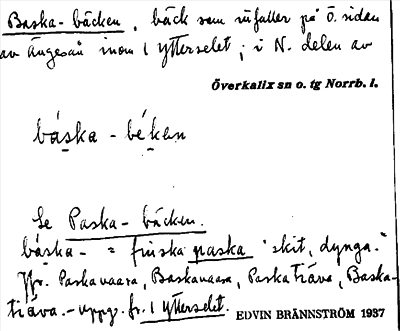 Baska-bäcken, bäck som utfaller på ö. sidan
av Ängesån inom 1 Ytterselet; i N. delen av
Överkalix sn o. tg Norrb. l.
báska - béken
Se Paska-bäcken.
báska- = finska paska "skit, dynga."
Jfr. Paskavaara, Baskavaara, Paskaträva, Baska-
träva. - uppg. fr. 1 Ytterselet. EDVIN BRÄNNSTRÖM 1937